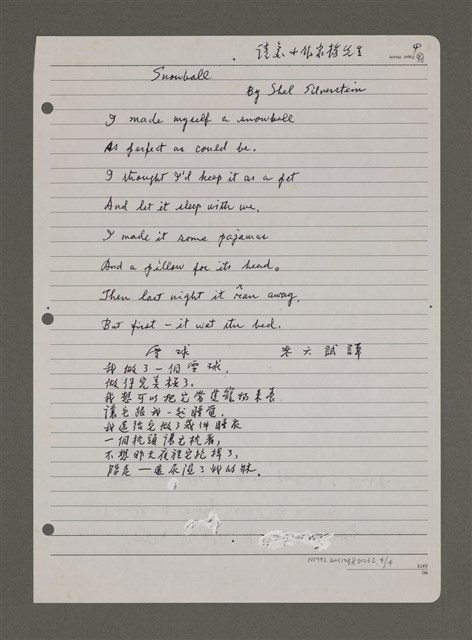 4
Snowball
By Shel Silverstein
I made myself a snowball
As perfect as could be.
I thought I'd keep it as a pet
And let it sleep with me.
I made it some pajamas
And a pillow for its head.
Then last night it ran away,
But first – it wet the bed.
雪球 宋六試譯
我做了一個雪球,
做得完美極了.
我想可以把它當作寵物來養
讓它跟我一起睡覺.
我還給它做了幾件睡衣
一個枕頭讓它枕著,
不想昨天夜裡它跑掉了,
臨走一還尿濕了我的牀.